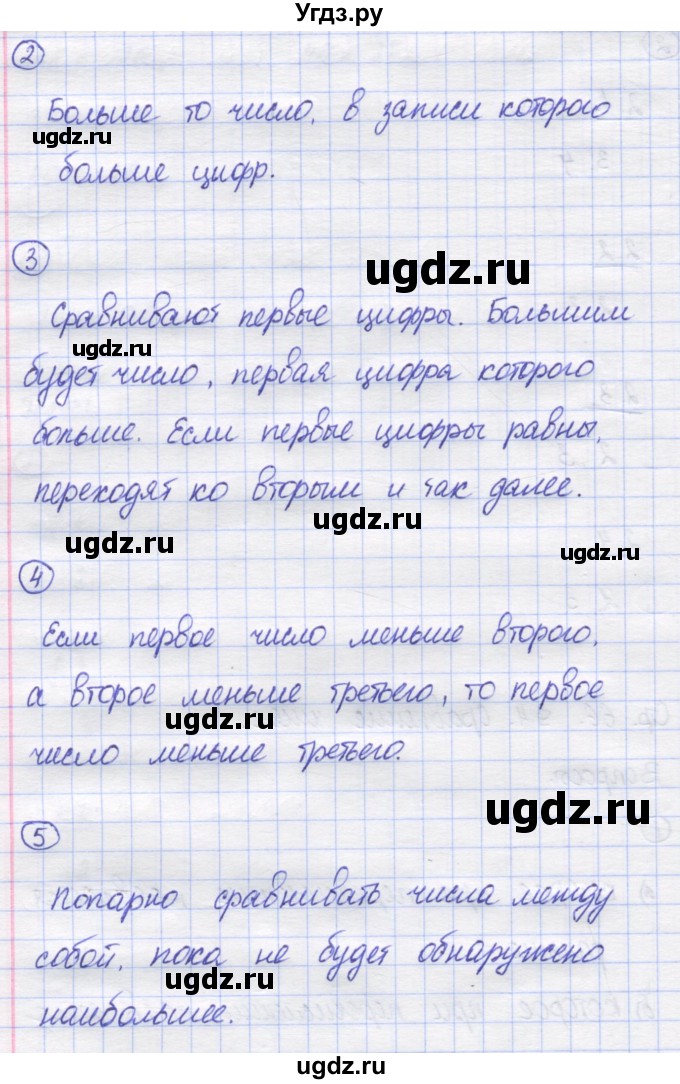 Угдз.ру
2
Больше то число, в записи которого
ugdz.ru
больше цифр.
3
ugdz.ru
Сравнивают первые цифры. Большим
ugdz.ru
будет число, первая цифра которого
больше. Если первые цифры равны,
переходят ко вторым и так далее.
ugdz.ru
ugdz.ru
ugdz.ru
4
Если первое число меньше второго,
а второе меньше третьего, то первое
ugdz.ru
число меньше третьего.
ugdz.ru
5
Попарно сравнивать числа между
собой, пока не будет обнаружено
ugdz.ru
наибольшее.
ugdz.ru